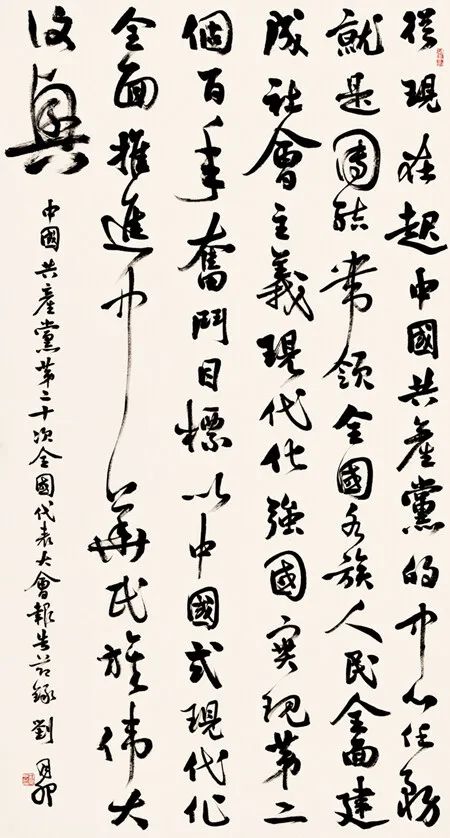 從現在起中國共產黨的中心任務
就是團結帶領全國各族人民全面建
成社會主義現代化強國實現第二
個百年奮鬥目標以中國式現代化
全面推進中華民族偉大
復興
中國共產黨第二十次全國代表大會報告節錄 劉月卯